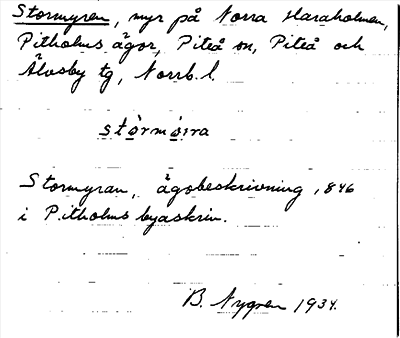 Stormyren, myr på Norra Haraholmen,
Pitholms ägor, Piteå sn, Piteå och
Älvsby tg, Norrb. l.
stȯrmȯrra
Stormyran, ägobeskrivning 1846
i Pitholms byaskrin.
B. Nygren 1934.